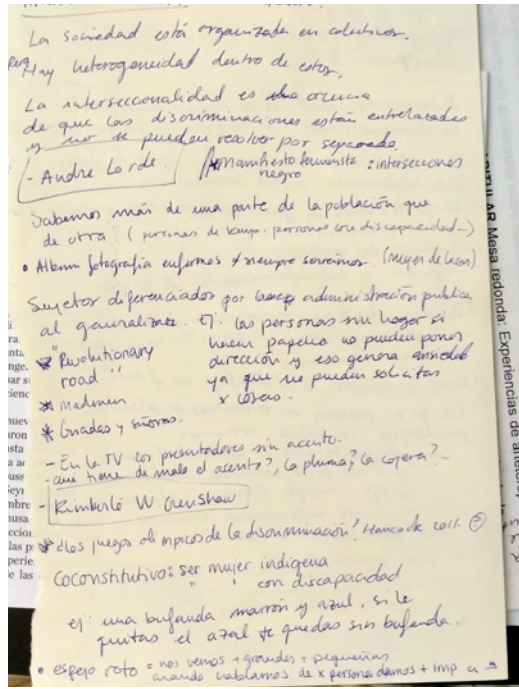 La sociedad está organizada en colectivos.
Pero Hay heterogeneidad dentro de estos.
La interseccionalidad es una creencia
de que las discriminaciones están entrelazadas
y no se pueden resolver por separado.
- Andre Lorde. manifiesto feminista : intersecciones
negro
Sabemos más de una parte de la población que
de otra (personas de kenya, personas con discapacidad...)
• Album fotografía enfermos ≠ siempre sonreímos. (mujer de
Sujetos diferenciados por administración publica
al generalizar. Ej: las personas sin hogar si
"Revolutionary hacen papeleo no pueden poner
road" dirección y eso genera ansiedad
* madmen. ya que no pueden solicitar
x cosas.
* Criadas y señoras.
- En la TV los presentadores sin acento.
- que tiene de malo el acento?, la pluma? la cojera? -
- Kimberlé W. Crenshaw
* ¿los juegos olimpicos de la discriminación? Hancock 2011.
Coconstitutivo: ser mujer indígena
" " con discapacidad
ej: una bufanda marrón y azul, si le
quitas el azul te quedas sin bufanda.
• espejo roto = nos vemos + grandes + pequeñas
cuando hablamos de x persona damos + imp a
CAPITULAR Mesa redonda: Experiencias de